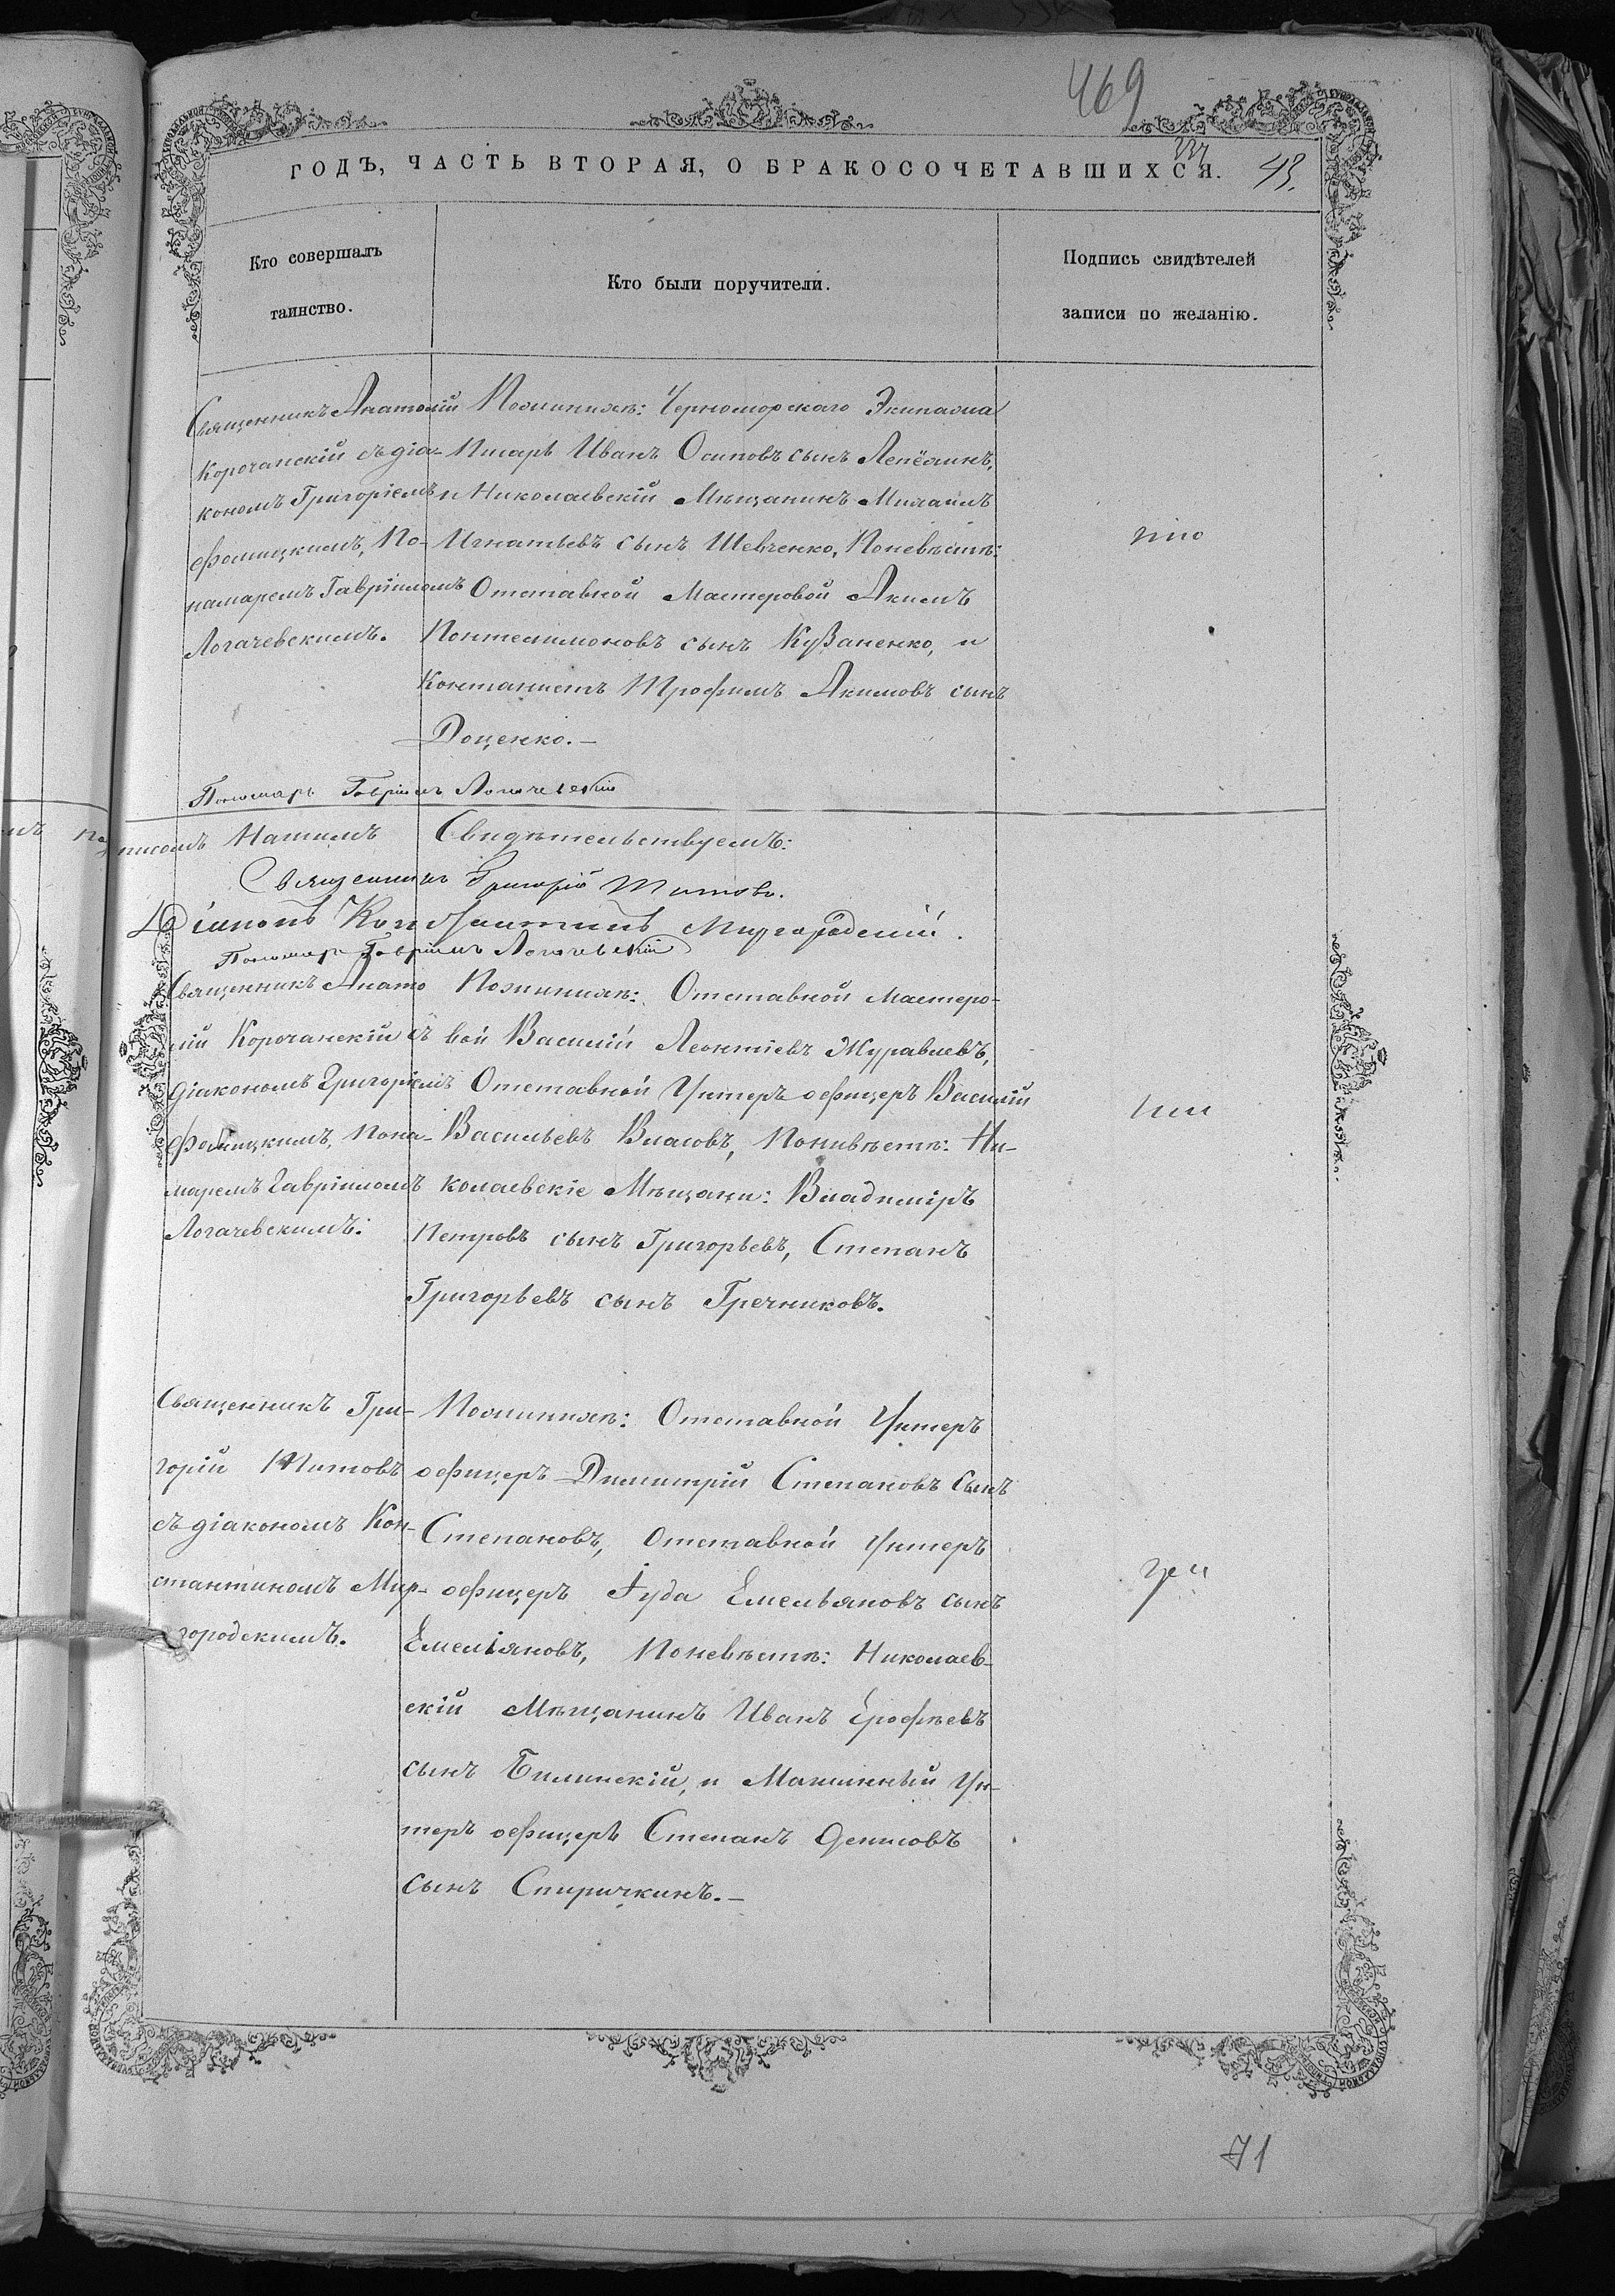 469
ГОДЪ, ЧАСТЬ ВТОРАЯ, О БРАКОСОЧЕТАВШИХСЯ.
43.
Кто совершалъ
таинство.
Кто были поручители.
Подпись свидѣтелей
записи по желанію.
Священникъ Анатолій
Корочанскій съ діа-
кономъ Григоріемъ
Фомицкимъ, По-
намаремъ Гавріиломъ
Логачевскимъ.
Пожинихѣ: Черноморскаго Экипажа
Писарь Иванъ Осиповъ сынъ
и Николаевскій Мѣщанинъ Михаилъ
Игнатьевъ сынъ Шевченко, Поневѣстѣ:
Отставной Мастеровой Акимъ
Понтелимоновъ сынъ Кубаненко, и
Контанистъ Трофимъ Акимовъ сынъ
Доценко.—
Пономарь Гавріилъ Логачевскій
писомъ Нашимъ Свидѣтельствуемъ:
Священникъ Григорій Титовъ.
Діаконъ Константинъ Миргородскій.
Пономарь Гавріилъ Логачевскій
Священникъ Анато
лій Корочанскій съ
діакономъ Григоріемъ
Фомицкимъ, Пона-
маремъ Гавріиломъ
Логачевскимъ:
Пожинихѣ: Отставной Мастеро-
вой Василій Леонтіевъ Журавлевъ,
Отставной Унтеръ офицеръ Василій
Васильевъ Власовъ, Понивѣстѣ: Ни-
колаевскіе Мѣщани: Владиміръ
Петровъ сынъ Григорьевъ, Степанъ
Григорьевъ сынъ Гречниковъ.
Священникъ Гри-
горій Титовъ
съ діакономъ Кон-
стантиномъ Мир-
городскимъ.
Пожинихѣ: Отставной Унтеръ
офицеръ Димитрій Степановъ сынъ
Степановъ, Отставной Унтеръ
офицеръ Іуда Емельяновъ сынъ
Емеліяновъ, Поневѣстѣ: Николаев-
скій Мѣщанинъ Иванъ Ерофѣевъ
сынъ Билинскій, и Машинный Ун-
теръ офицеръ Степанъ Денисовъ
сынъ Спиричкинъ.—
71